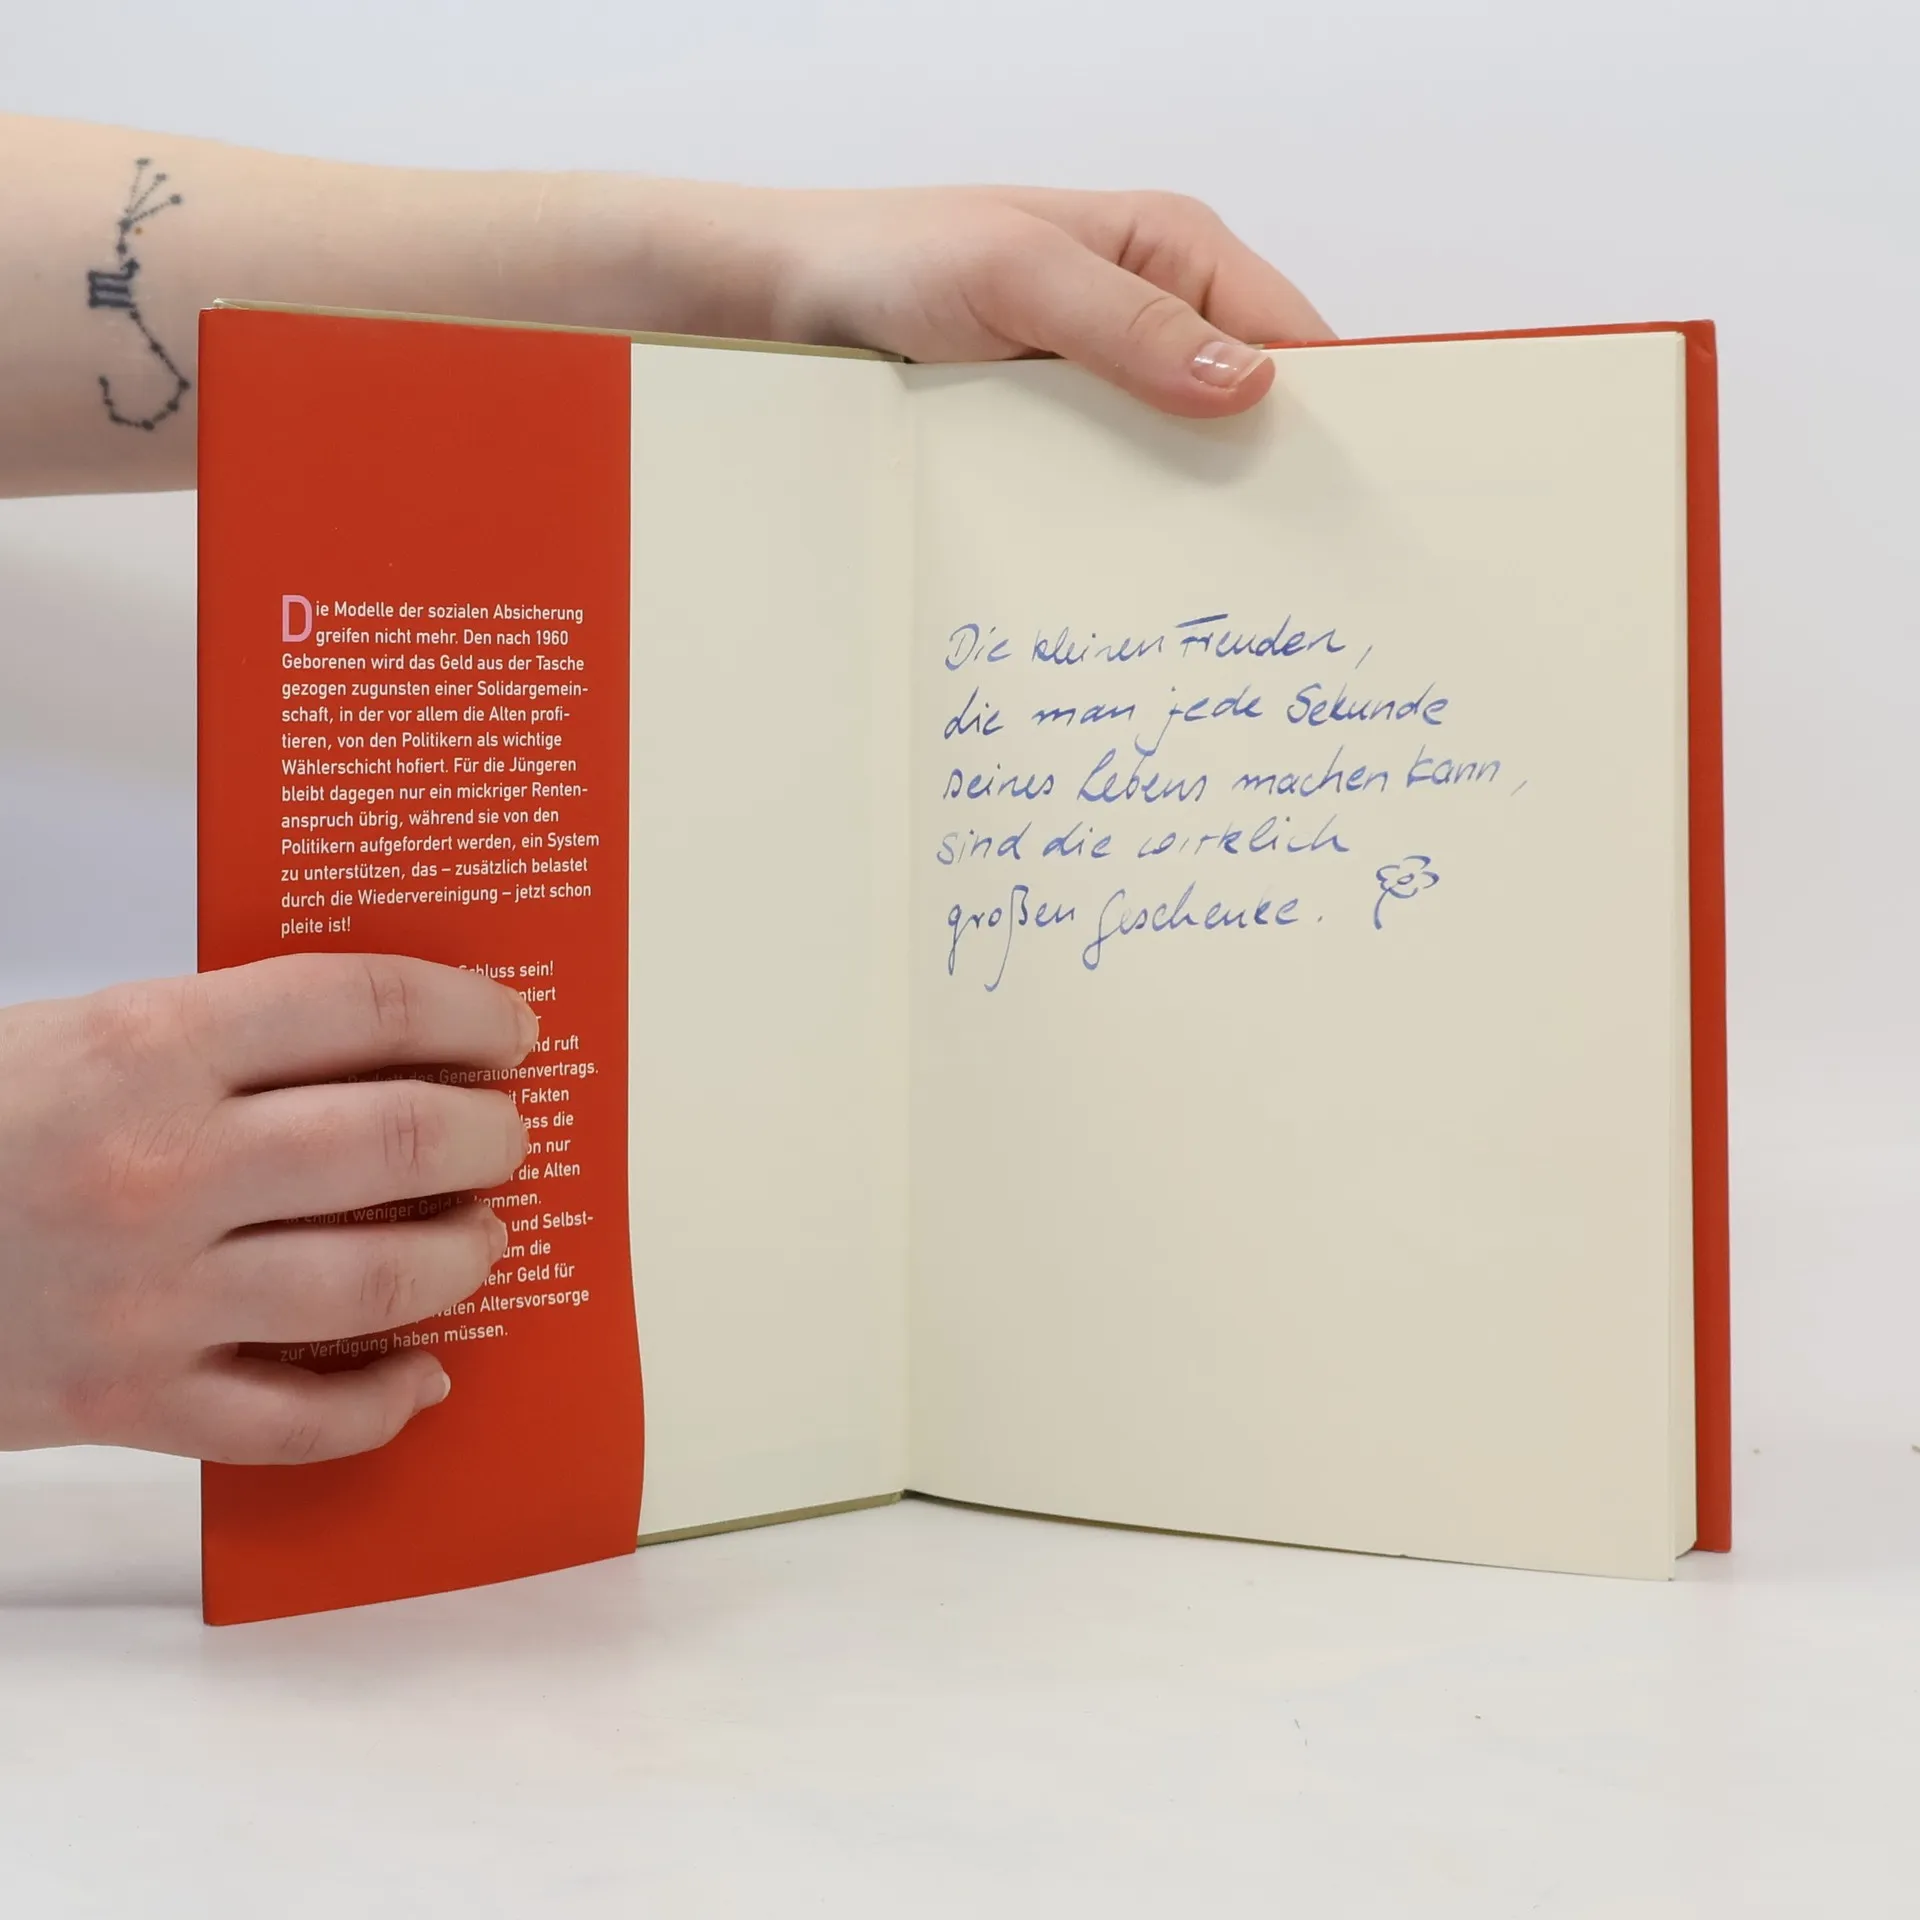 Die Modelle der sozialen Absicherung
greifen nicht mehr. Den nach 1960
Geborenen wird das Geld aus der Tasche
gezogen zugunsten einer Solidargemein-
schaft, in der vor allem die Alten profi-
tieren, von den Politikern als wichtige
Wählerschicht hofiert. Für die Jüngeren
bleibt dagegen nur ein mickriger Renten-
anspruch übrig, während sie von den
Politikern aufgefordert werden, ein System
zu unterstützen, das – zusätzlich belastet
durch die Wiedervereinigung – jetzt schon
pleite ist!
Schluss sein!
nd ruft
des Generationenvertrags.
it Fakten
dass die
on nur
die Alten
weniger Geld
und Selbst-
um die
mehr Geld für
Altersvorsorge
zur Verfügung haben müssen.
Die kleinen Freuden,
die man jede Sekunde
seines Lebens machen kann,
sind die wirklich
großen Geschenke.